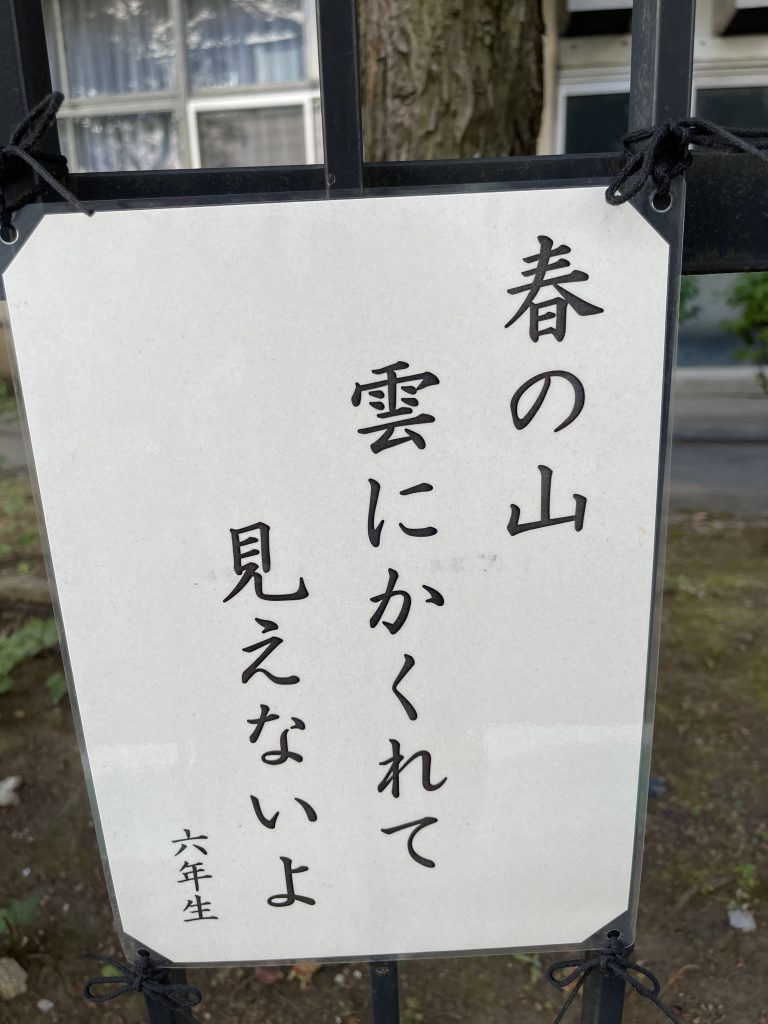 春の山
雲にかくれて
見えないよ
六年生